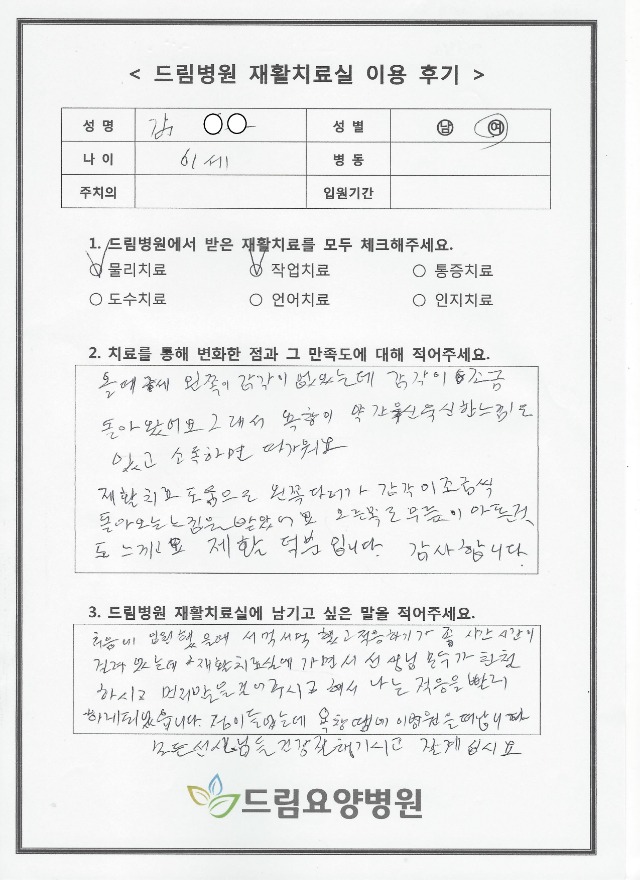 < 드림병원 재활치료실 이용 후기 >
성 명 김 ○○ 성 별 남 여
나 이 61세 병 동
주치의 입원기간
1. 드림병원에서 받은 재활치료를 모두 체크해주세요.
○ 물리치료 ○ 작업치료 ○ 통증치료
○ 도수치료 ○ 언어치료 ○ 인지치료
2. 치료를 통해 변화한 점과 그 만족도에 대해 적어주세요.
올때 왼쪽이 감각이 없었는데 감각이 조금
돌아왔어요 그래서 욕창이 약간 욱신욱신한느낌도
있고 소독하면 따가워요
재활치료 도움으로 왼쪽다리가 감각이조금씩
돌아오는느낌을 받았어요 오른쪽도무릎이 아픈것
도 느끼고요 재활 덕분입니다. 감사합니다.
3. 드림병원 재활치료실에 남기고 싶은 말을 적어주세요.
처음에 입원했을때 서먹서먹 했고적응하기가 좀 시간 시간이
걸려 있는데 재활치료실에 가면서 선생님 모두가 친절
하시고 먼저말을걸어주시고 해서 나는 적응을빨리
하게되었습니다 정이들었는데 욕창땜에 이병원을떠납니다
모든선생님들건강잘챙기시고 잘계십시요
드림요양병원